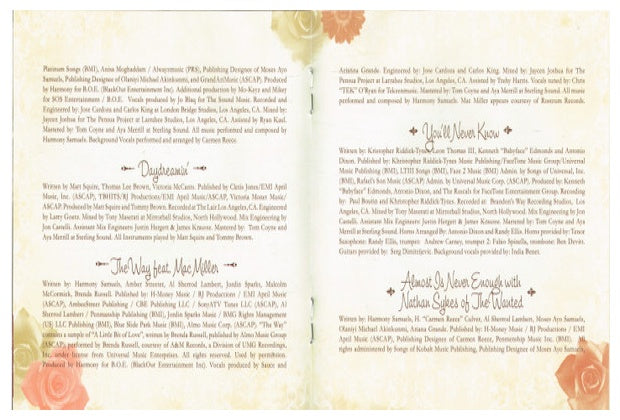 Platinum Songs (BMI), Anisa Moghaddam / Alwaysmusic (PRS), Publishing Designee of Moses Ayo
Samuels, Publishing Designee of Olaniyi Michael Akinkunmi, and GrandArtMusic (ASCAP). Produced
by Harmony for B.O.E. (BlackOut Entertainment Inc). Additional production by Mo-Keyz and Mikey
for SOS Entertainment / B.O.E. Vocals produced by Jo Blaq for The Sound Music. Recorded and
Engineered by: Jose Cardoza and Carlos King at London Bridge Studios, Los Angeles, CA. Mixed by:
Jaycen Joshua for The Penua Project at Larrabee Studios, Los Angeles, CA. Assisted by Ryan Kaul.
Mastered by: Tom Coyne and Aya Merrill at Sterling Sound. All music performed and composed by
Harmony Samuels. Background Vocals performed and arranged by Carmen Reece.
Daydreamin'
Written by Matt Squire, Thomas Lee Brown, Victoria McCants. Published by Clexis Jones/EMI April
Music, Inc. (ASCAP), Productions/EMI April Music/ASCAP, Victoria Monet Music/
ASCAP. Produced by Matt Squire and Tommy Brown. Recorded at The Lair Los Angeles, CA. Engineered
by Larry Goetz. Mixed by Tony Maserati at Mirrorball Studios, North Hollywood. Mix Engineering by
Jon Castelli. Assistant Mix Engineers Justin Hergett & James Krausse. Mastered by: Tom Coyne and
Aya Merrill at Sterling Sound. All Instruments played by Matt Squire and Tommy Brown.
The Way feat. Mac Miller
Written by: Harmony Samuels, Amber Streeter, Al Sherrod Lambert, Jordin Sparks, Malcolm
McCormick, Brenda Russell. Published by: H-Money Music / RJ Productions / EMI April Music
(ASCAP), AmberStreet Publishing / CBE Publishing LLC / Sony/ATV Tunes LLC (ASCAP), Al
Sherrod Lambert / Penmanship Publishing (BMI), Jordin Sparks Music / BMG Rights Management
(US) LLC Publishing (BMI), Blue Slide Park Music (BMI), Almo Music Corp. (ASCAP). "The Way"
contains a sample of "A Little Bit of Love", written by Brenda Russell, published by Almo Music Group
(ASCAP) performed by Brenda Russell, courtesy of A&M Records, a Division of UMG Recordings,
Inc. under license from Universal Music Enterprises. All rights reserved. Used by permission.
Produced by Harmony for B.O.E. (BlackOut Entertainment Inc). Vocals produced by Sauce and
Arianna Grande. Engineered by: Jose Cardoza and Carlos King. Mixed by: Jaycen Joshua for The
Penua Project at Larrabee Studios, Los Angeles, CA. Assisted by Trehy Harris. Vocals tuned by: Chris
"TEK" O'Ryan for Tekzenmusic. Mastered by: Tom Coyne and Aya Merrill at Sterling Sound. All music
performed and composed by Harmony Samuels. Mac Miller appears courtesy of Rostrum Records.
You'll Never Know
Written by: Kristopher Riddick-Tynes, Leon Thomas III, Kenneth "Babyface" Edmonds and Antonio
Dixon. Published by: Khristopher Riddick-Tynes Music Publishing/FaceTone Music Group/Universal
Music Publishing (BMI), LT3 Songs (BMI), Faze 2 Music (BMI) Admin. by Songs of Universal, Inc.
(BMI), Rafael's Son Music (ASCAP) Admin. by Universal Music Corp. (ASCAP). Produced by: Kenneth
"Babyface" Edmonds, Antonio Dixon, and The Rascals for FaceTone Entertainment Group. Recording
by: Paul Boutin and Khristopher Riddick-Tynes. Recorded at: Brandon's Way Recording Studios, Los
Angeles, CA. Mixed by Tony Maserati at Mirrorball Studios, North Hollywood. Mix Engineering by Jon
Castelli. Assistant Mix Engineers Justin Hergett & James Krausse. Mastered by: Tom Coyne and Aya Merrill
at Sterling Sound. Horns Arranged By: Antonio Dixon and Randy Ellis. Horns provided by: Tenor
Saxophone: Randy Ellis, trumpet: Andrew Carney, trumpet 2: Fabio Spinella, trombone: Ben Devitt.
Guitars provided by: Serg Dimitrijevic. Background vocals provided by: India Benet.
Almost Is Never Enough with
Nathan Sykes of The Wanted
Written by: Harmony Samuels, H. "Carmen Reece" Culver, Al Sherrod Lambert, Moses Ayo Samuels,
Olaniyi Michael Akinkunmi, Ariana Grande. Published by: H-Money Music / RJ Productions / EMI
April Music (ASCAP), Publishing Designee of Carmen Reece, Penmanship Music Inc. (BMI). All
rights administered by Songs of Kobalt Music Publishing, Publishing Designee of Moses Ayo Samuels,